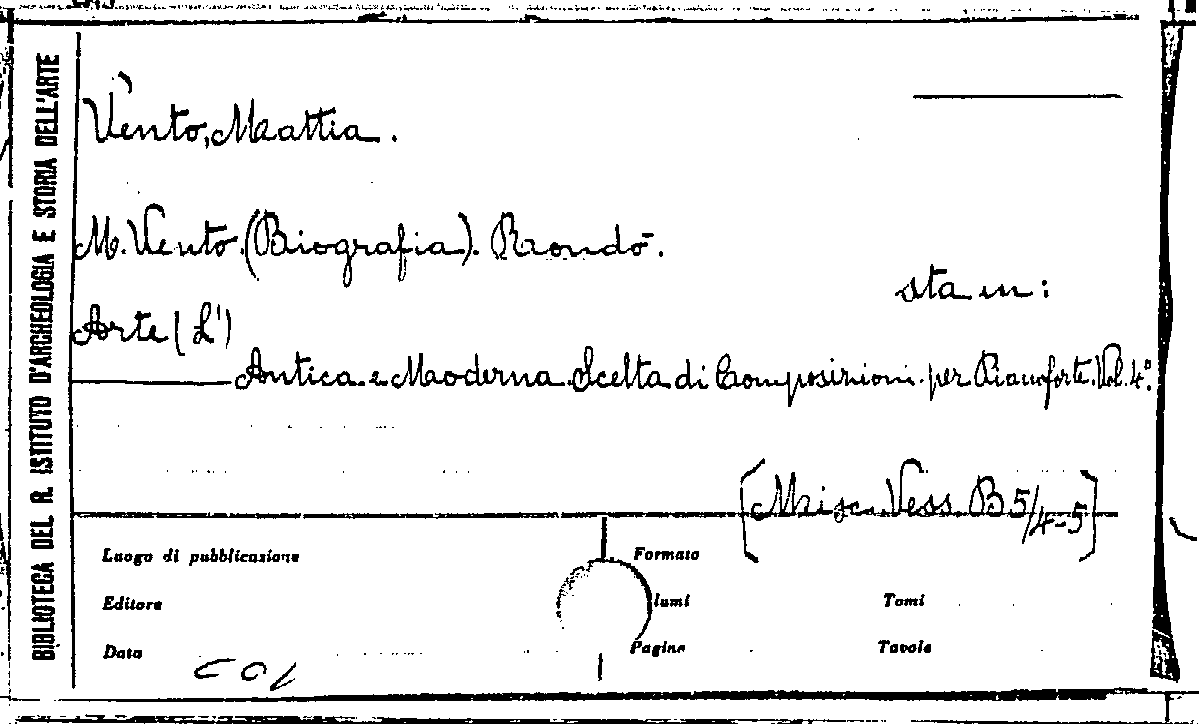 BIBLIOTECA DEL R. ISTITUTO D'ARCHEOLOGIA E STORIA DELL'ARTE
Vento, Mattia.
M. Vento. (Biografia). Rondò.
sta in:
Arte (L')
Antica e Moderna. Scelta di Composizioni per Pianoforte. Vol. 4º.
[Misc. Vess. B 5/4-5]
Luogo di pubblicazione Formato
Editore lumi Tomi
Data Pagine Tavole